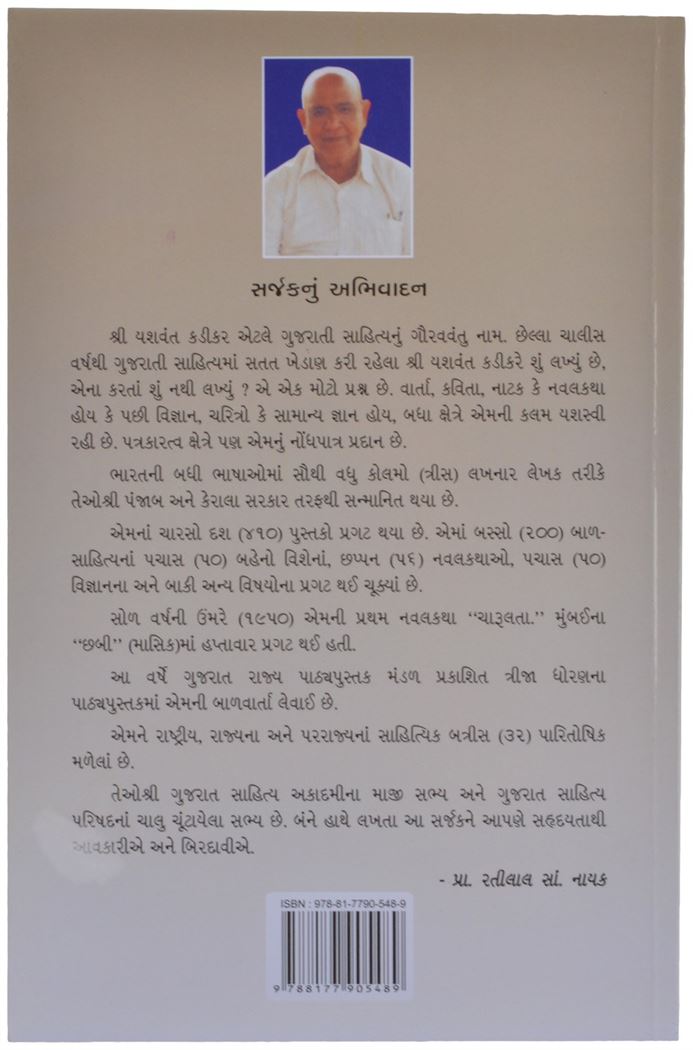 સર્જકનું અભિવાદન
શ્રી યશવંત કડીકર એટલે ગુજરાતી સાહિત્યનું ગૌરવવંતુ નામ. છેલ્લા ચાલીસ
વર્ષથી ગુજરાતી સાહિત્યમાં સતત ખેડાણ કરી રહેલા શ્રી યશવંત કડીકરે શું લખ્યું છે,
એના કરતાં શું નથી લખ્યું ? એ એક મોટો પ્રશ્ન છે. વાર્તા, કવિતા, નાટક કે નવલકથા
હોય કે પછી વિજ્ઞાન, ચરિત્રો કે સામાન્ય જ્ઞાન હોય, બધા ક્ષેત્રે એમની કલમ યશસ્વી
રહી છે. પત્રકારત્વ ક્ષેત્રે પણ એમનું નોંધપાત્ર પ્રદાન છે.
ભારતની બધી ભાષાઓમાં સૌથી વધુ કોલમો (ત્રીસ) લખનાર લેખક તરીકે
તેઓશ્રી પંજાબ અને કેરાલા સરકાર તરફથી સન્માનિત થયા છે.
એમનાં ચારસો દશ (૪૧૦) પુસ્તકો પ્રગટ થયા છે. એમાં બસ્સો (૨૦૦) બાળ-
સાહિત્યનાં પચાસ (૫૦) બહેનો વિશેનાં, છપ્પન (૫૬) નવલકથાઓ, પચાસ (૫૦)
વિજ્ઞાનના અને બાકી અન્ય વિષયોના પ્રગટ થઈ ચૂક્યાં છે.
સોળ વર્ષની ઉંમરે (૧૯૫૦) એમની પ્રથમ નવલકથા “ચારૂલતા.” મુંબઈના
“છબી” (માસિક)માં હપ્તાવાર પ્રગટ થઈ હતી.
આ વર્ષે ગુજરાત રાજ્ય પાઠ્યપુસ્તક મંડળ પ્રકાશિત ત્રીજા ધોરણના
પાઠ્યપુસ્તકમાં એમની બાળવાર્તા લેવાઈ છે.
એમને રાષ્ટ્રીય, રાજ્યના અને પરરાજ્યનાં સાહિત્યિક બત્રીસ (૩૨) પારિતોષિક
મળેલાં છે.
તેઓશ્રી ગુજરાત સાહિત્ય અકાદમીના માજી સભ્ય અને ગુજરાત સાહિત્ય
પરિષદનાં ચાલુ ચૂંટાયેલા સભ્ય છે. બંને હાથે લખતા આ સર્જકને આપણે સહૃદયતાથી
આવકારીએ અને બિરદાવીએ.
- પ્રા. રતીલાલ સાં. નાયક
ISBN : 978-81-7790-548-9
9 788177 905489